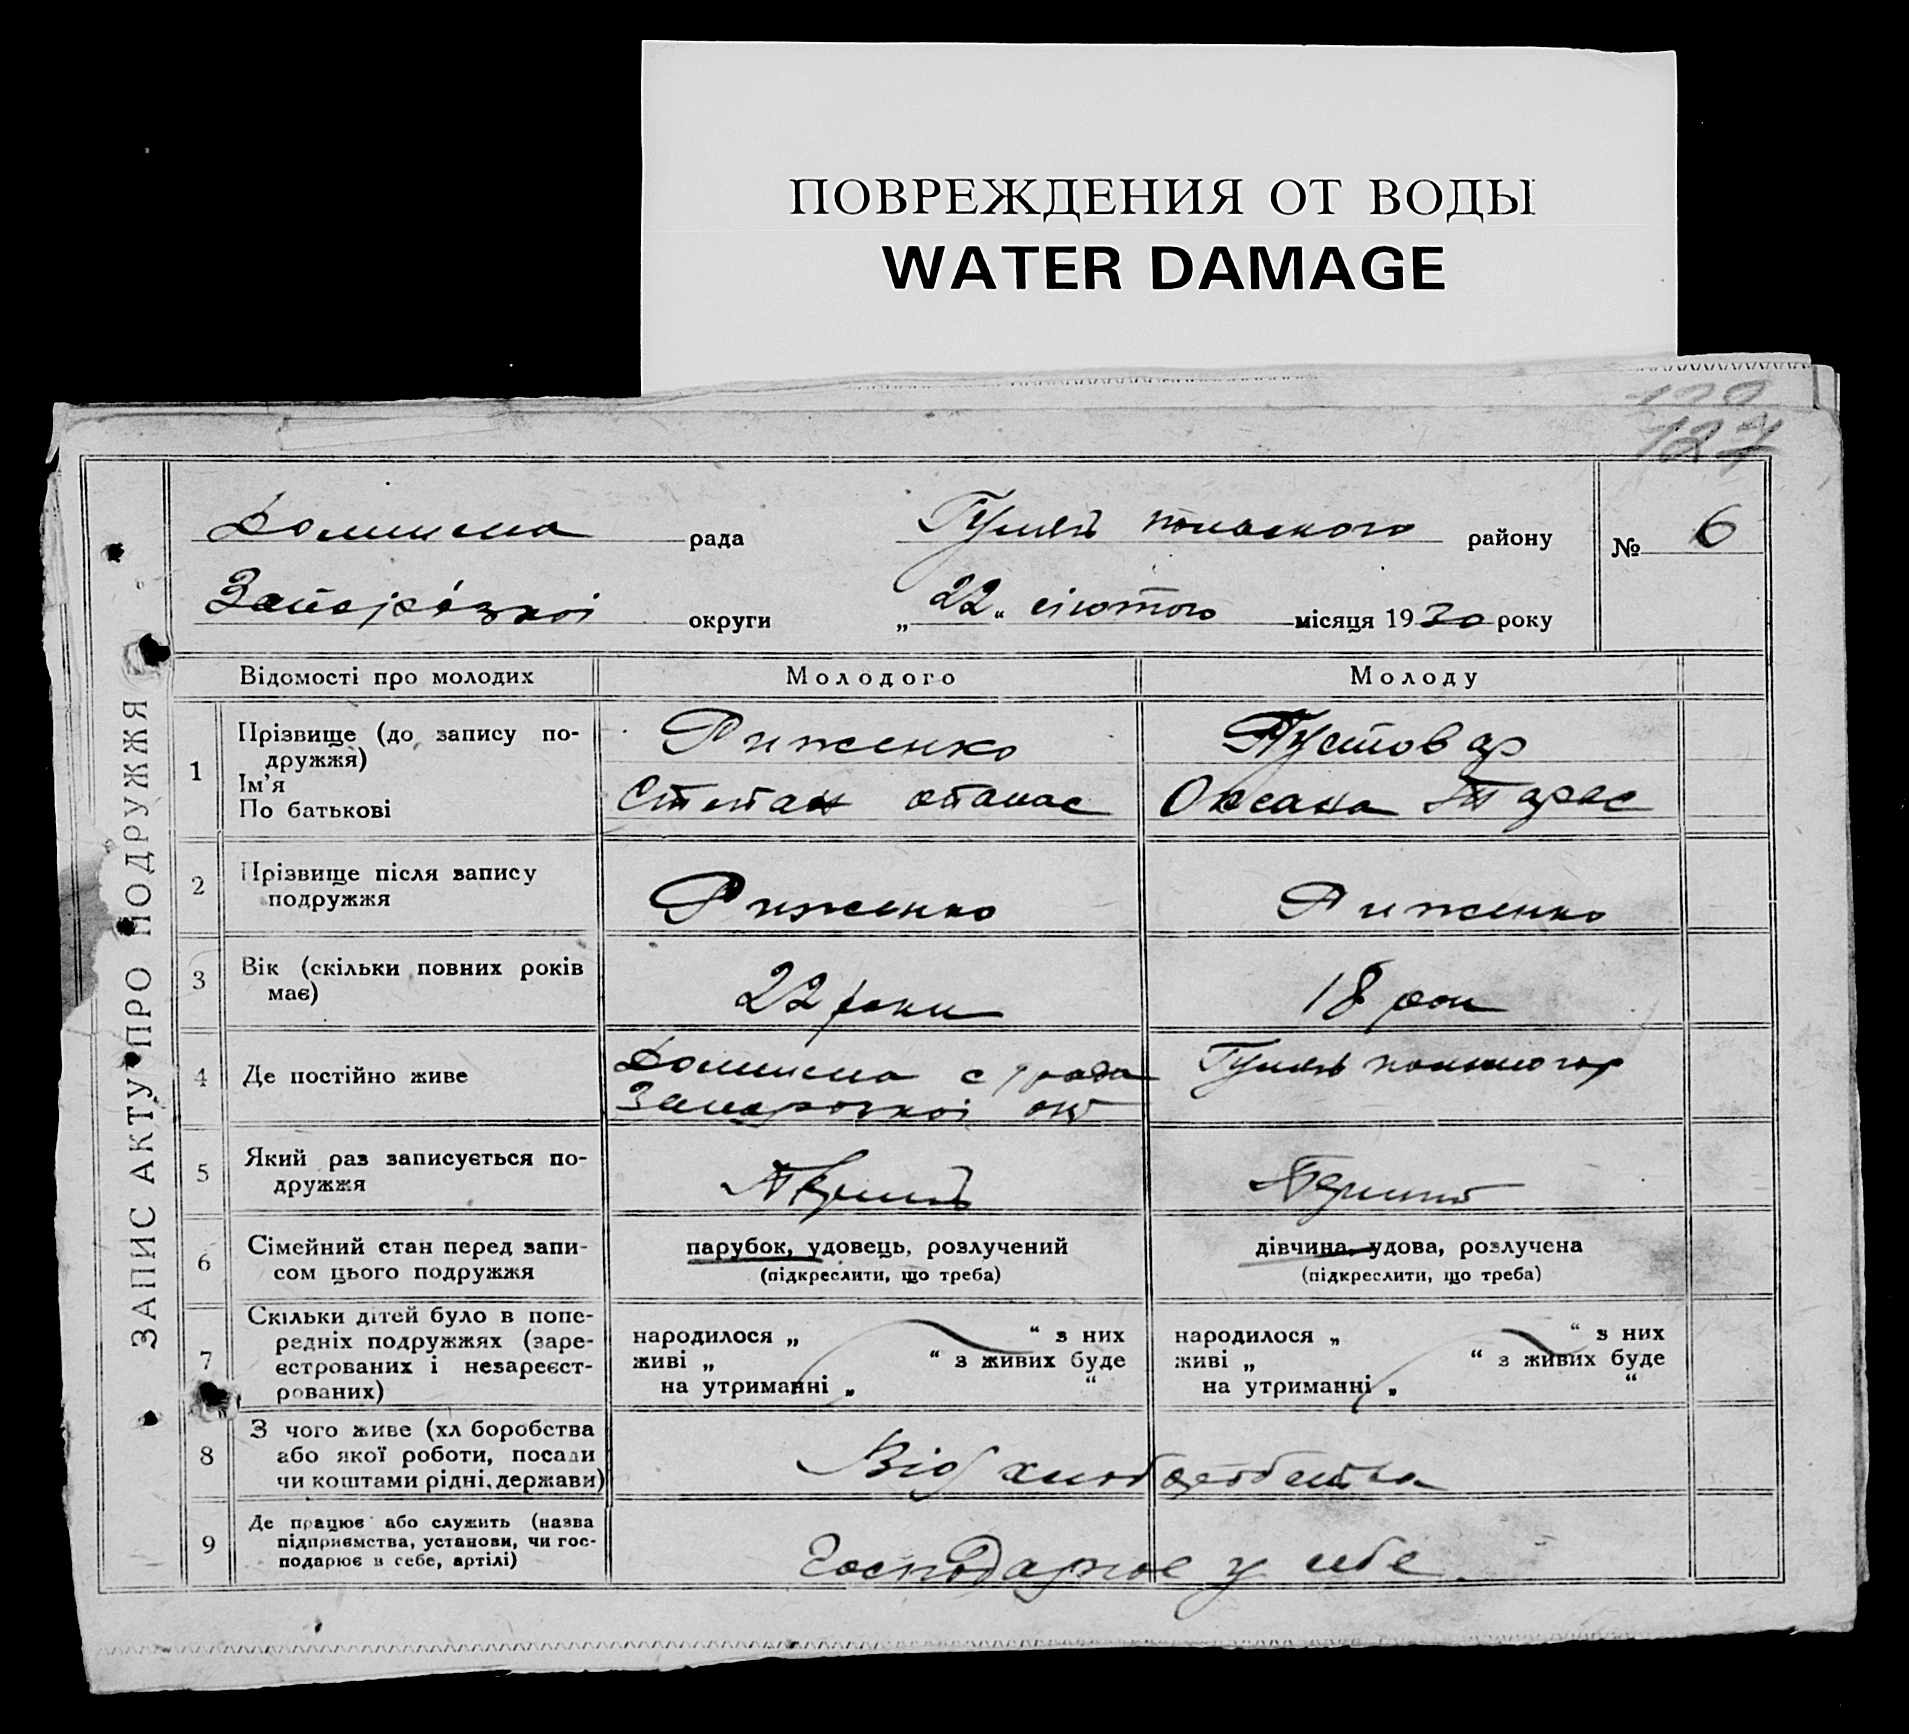 ПОВРЕЖДЕНИЯ ОТ ВОДЫ
WATER DAMAGE
127
рада
району
№ 6
округи
„22“ лютого місяця 1930 року
ЗАПИС АКТУ ПРО ПОДРУЖЖЯ
Відомості про молодих
Молодого
Молоду
1
Прізвище (до запису по-
дружжя)
Ім’я
По батькові
Риженко
Степан Опанас
Пустовар
Оксана Тарас
2
Прізвище після запису
подружжя
Риженко
Риженко
3
Вік (скільки повних років
має)
22 роки
18 рок
4
Де постійно живе
5
Який раз записується по-
дружжя
6
Сімейний стан перед запи-
сом цього подружжя
парубок, удовець, розлучений
(підкреслити, що треба)
дівчина, удова, розлучена
(підкреслити, що треба)
7
Скільки дітей було в попе-
редніх подружжях (заре-
єстрованих і незареєст-
рованих)
народилося „ “ з них
живі „ “ з живих буде
на утриманні „ “
народилося „ “ з них
живі „ “ з живих буде
на утриманні „ “
8
З чого живе (хл боробства
або якої роботи, посади
чи коштами рідні, держави)
Від хліборобства
9
Де працює або служить (назва
підприємства, установи, чи гос-
подарює в себе, артілі)
Господарює у себе